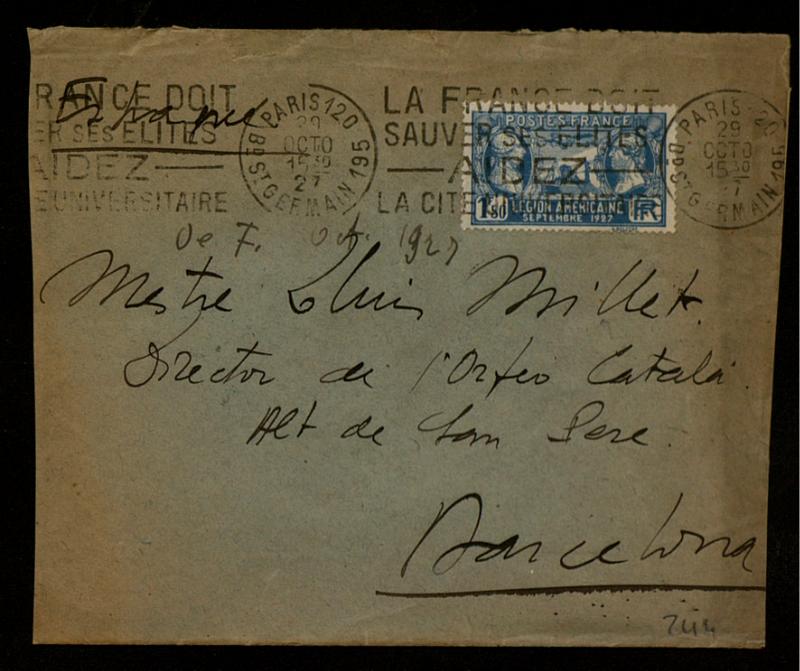 RANCE DOIT
ER SES ELITES
AIDEZ
E UNIVERSITAIRE
PARIS 120
29
OCTO
15 30
27
Bd ST GERMAIN 195
LA FRANCE DOIT
SAUVER SES ELITES
AIDEZ
LA CITE
POSTES FRANCE
1f50
LEGION AMERICAINE
SEPTEMBRE 1927
RF
PARIS 120
29
OCTO
15 30
27
Bd ST GERMAIN 195
De F. Oct. 1927
Mestre Lluis Millet.
Director de l'Orfeo Català.
Alt de San Pere.
Barcelona